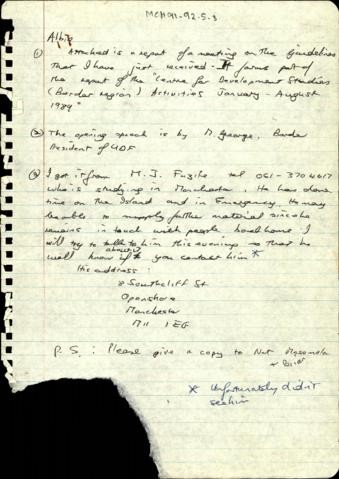 MCH91-92-5-3
Albie
(1) Attached is a report of a meeting on the Guidelines
that I have just received - It forms part of
the report of the "Centre for Development Studies
(Border region) Activities January - August
1989"
(2) The opening speech is by M. George, Border
President of UDF
(3) I got it from M. J. Fuzile tel 061-370 4617
who is studying in Manchester. He has done
time on the Island and in Emergency. He may
be able to supply further material since he
remains in touch with people back home. I
will try to talk to him this evening so that he
about it
will know if you contact him *
His address:
8 Southcliff St
Openshaw
Manchester
M11 1EG
P.S.: Please give a copy to Nat
+
* Unfortunately didn't
see him